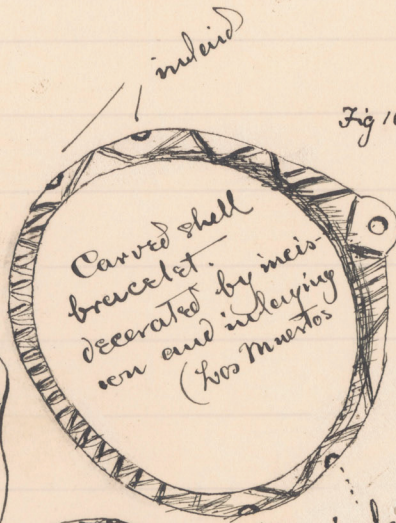 inlaid
Fig 10
Carved shell
bracelet.
decorated by incis-
ion and inlaying
(Los Muertos